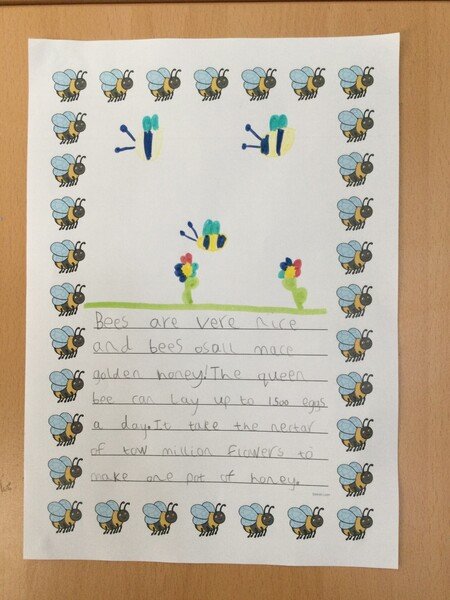 Bees are vere nice
and bees osall mace
golden honey! The queen
bee can lay up to 1500 eggs
a day. It take the nectar
of tow million flowers to
make one pot of honey.